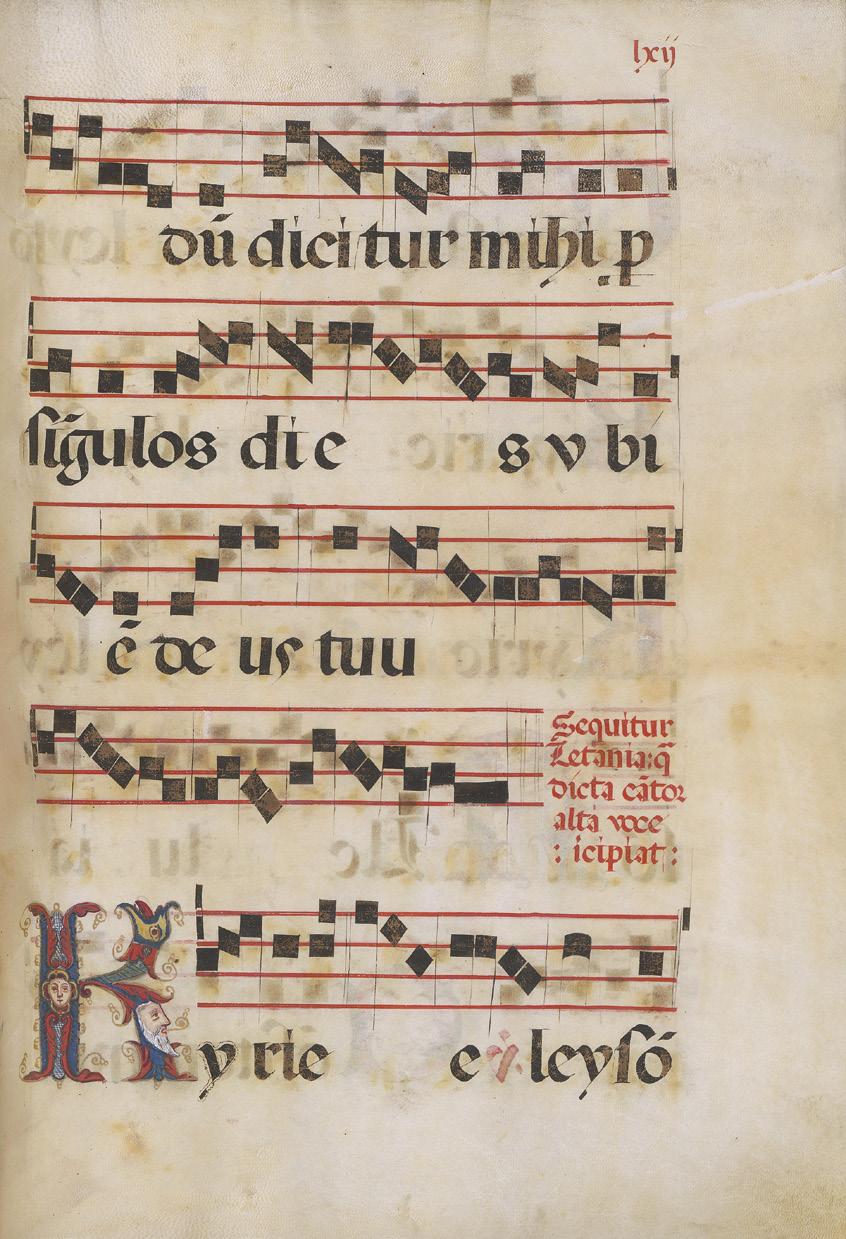 lxij
dū dicitur mihi p
sīgulos die s v bi
ē de us tuu
Sequitur
Letania: q̄
dicta cātor
alta voce
: icipiat :
Kyrie e leysō